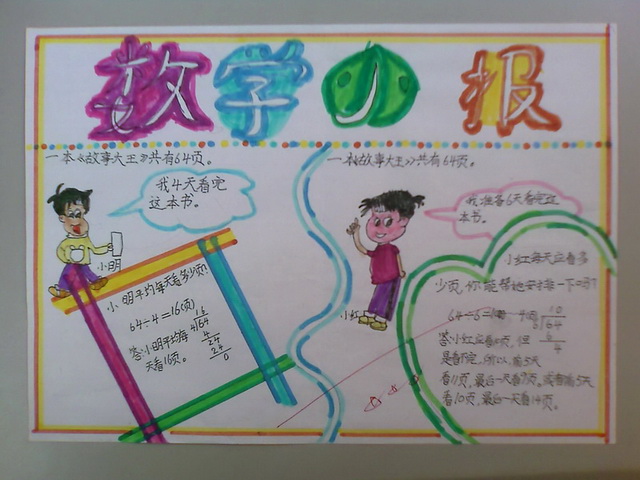 数学小报
一本《故事大王》共有64页。
我4天看完
这本书。
小明
小明平均每天看多少页?
64÷4=16(页)
16
4 64
4
24
24
0
答:小明平均每
天看16页。
一本《故事大王》共有64页。
我准备6天看完这
本书。
小红
小红每天应看多
少页,你能帮她安排一下吗?
64÷6=
10
6 64
6
4
答:小红应看10页,但
是看不完,所以前5天
看11页,最后一天看9页。或者前5天
看10页,最后一天看14页。